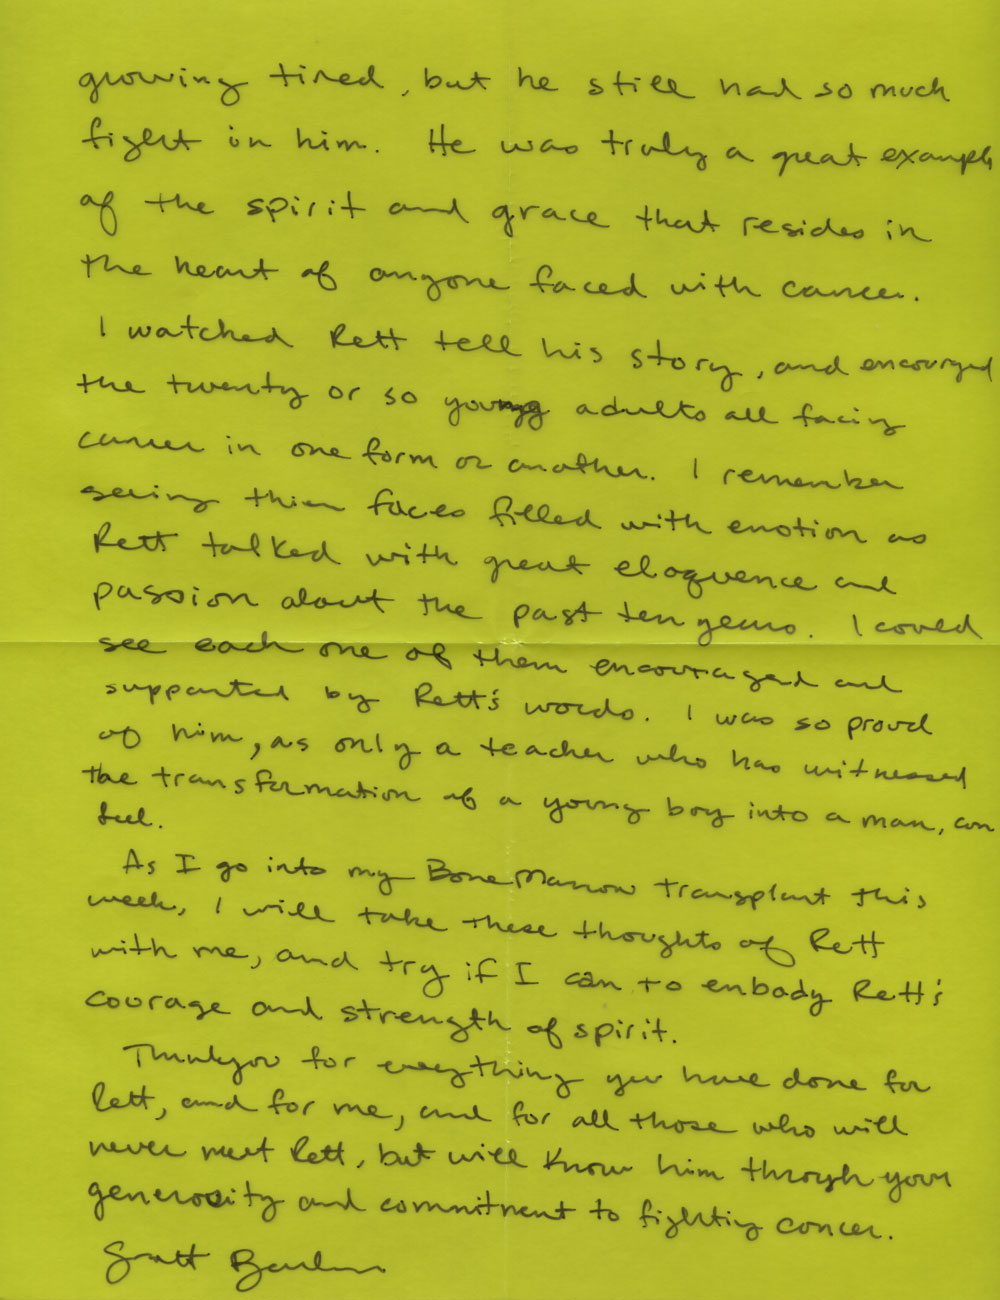 growing tired, but he still had so much
fight in him. He was truly a great example
of the spirit and grace that resides in
the heart of anyone faced with cancer.
I watched Rett tell his story, and encouraged
the twenty or so young adults all facing
cancer in one form or another. I remember
seeing their faces filled with emotion as
Rett talked with great eloquence and
passion about the past ten years. I could
see each one of them encouraged and
supported by Rett's words. I was so proud
of him, as only a teacher who has witnessed
the transformation of a young boy into a man, can
feel.
As I go into my Bone Marrow transplant this
week, I will take these thoughts of Rett
with me, and try if I can to embody Rett's
courage and strength of spirit.
Thankyou for everything you have done for
Rett, and for me, and for all those who will
never meet Rett, but will know him through your
generosity and commitment to fighting cancer.